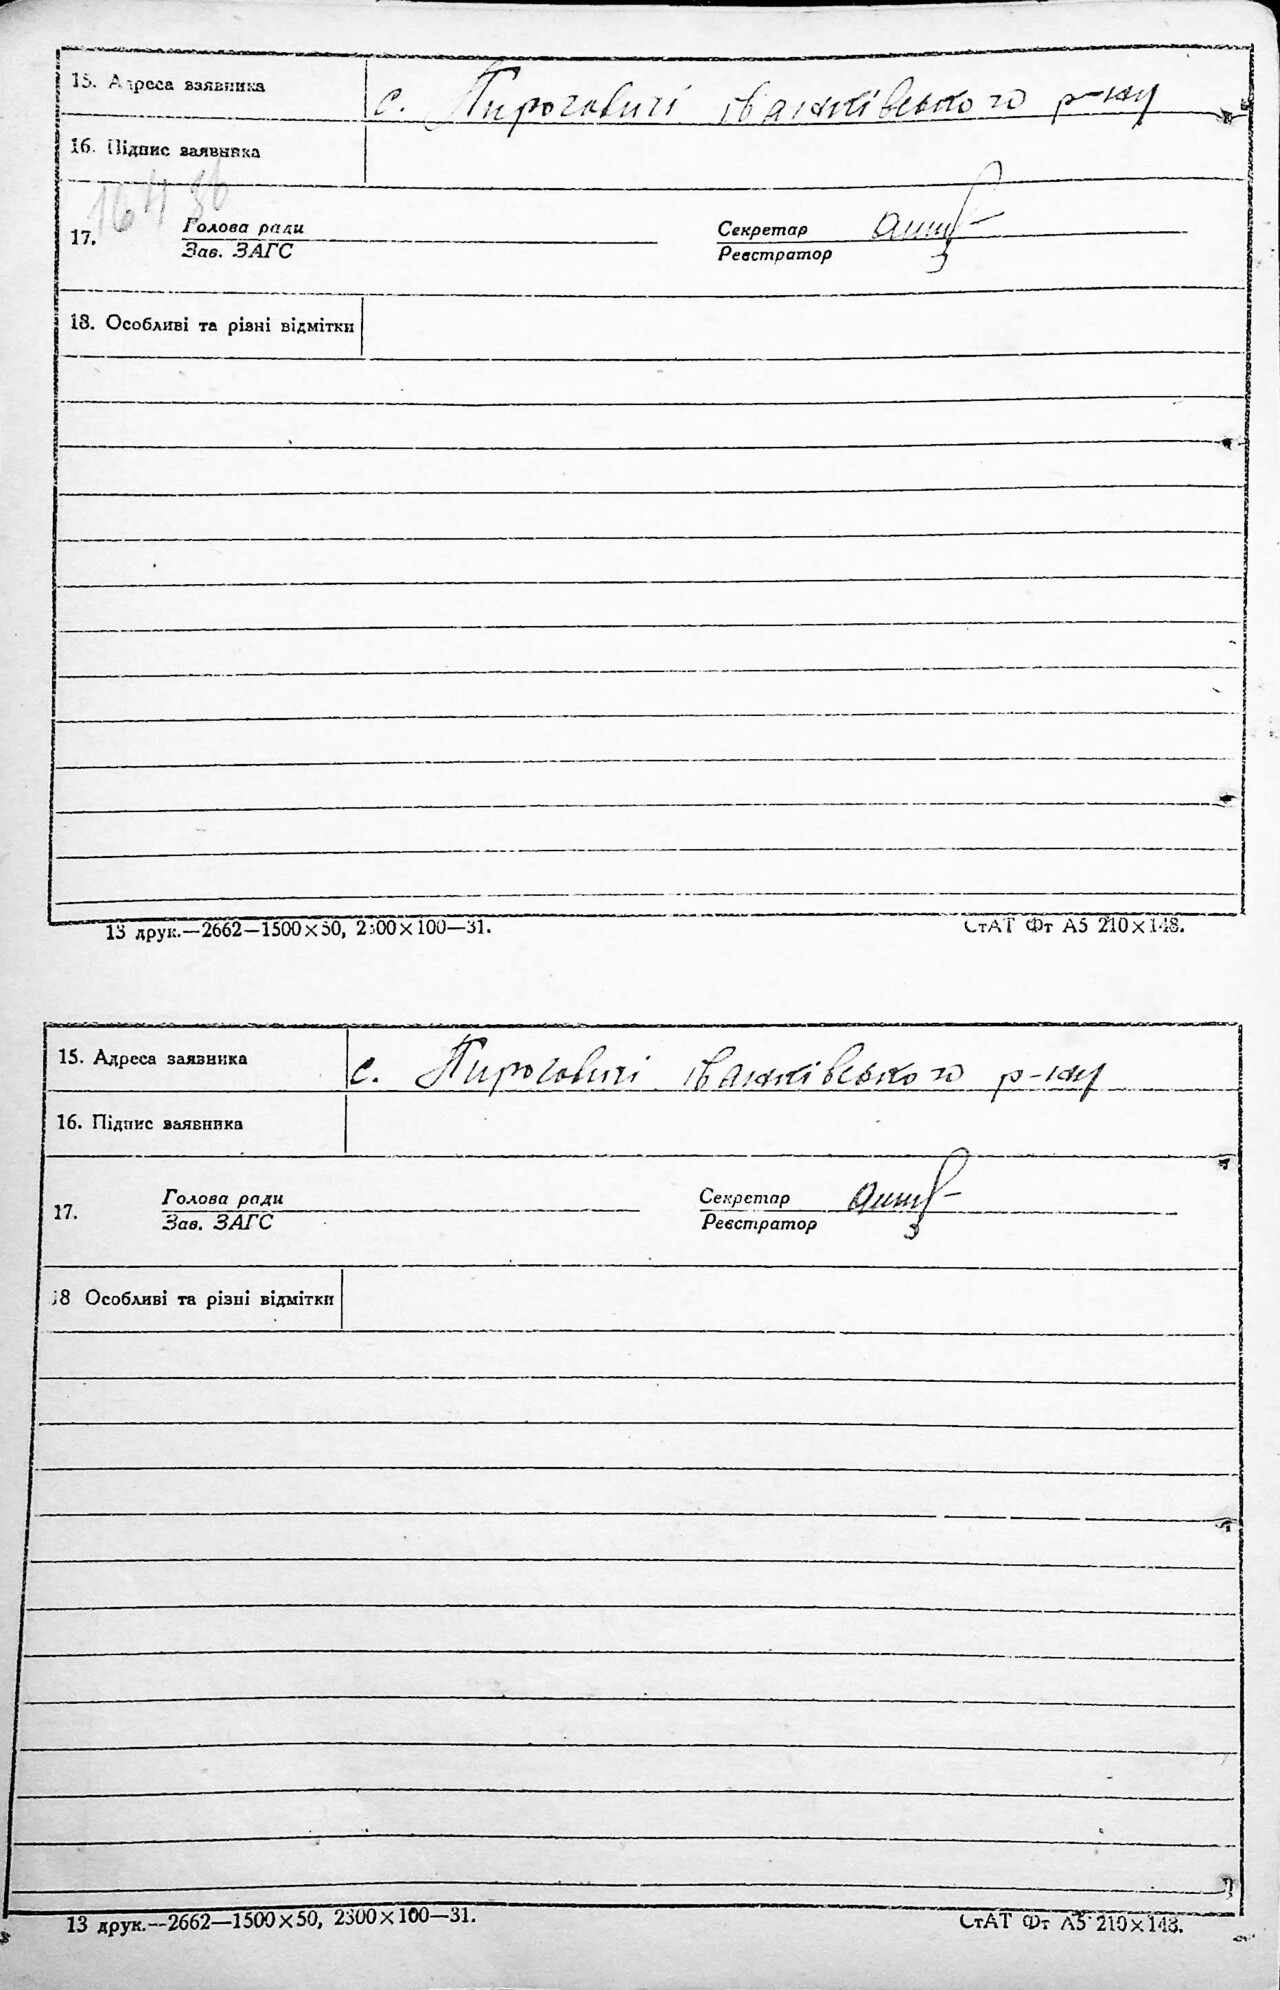 15. Адреса заявника с. Пироговичі Іванківського р-ну
16. Підпис заявника
16436
17. Голова ради Секретар
Зав. ЗАГС Реєстратор
18. Особливі та різні відмітки
13 друк.—2662—1500×50, 2300×100—31. СтАТ Фт А5 210×148.
15. Адреса заявника с. Пироговичі Іванківського р-ну
16. Підпис заявника
17. Голова ради Секретар
Зав. ЗАГС Реєстратор
18 Особливі та різні відмітки
13 друк.—2662—1500×50, 2300×100—31. СтАТ Фт А5 210×148.